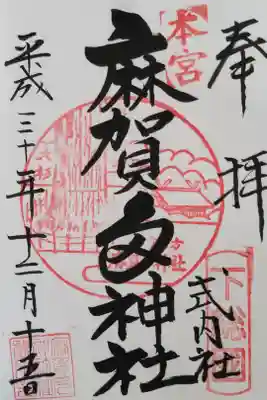 奉拝
下総国
式内社
本宮
麻賀多神社
平成三十年十二月十五日